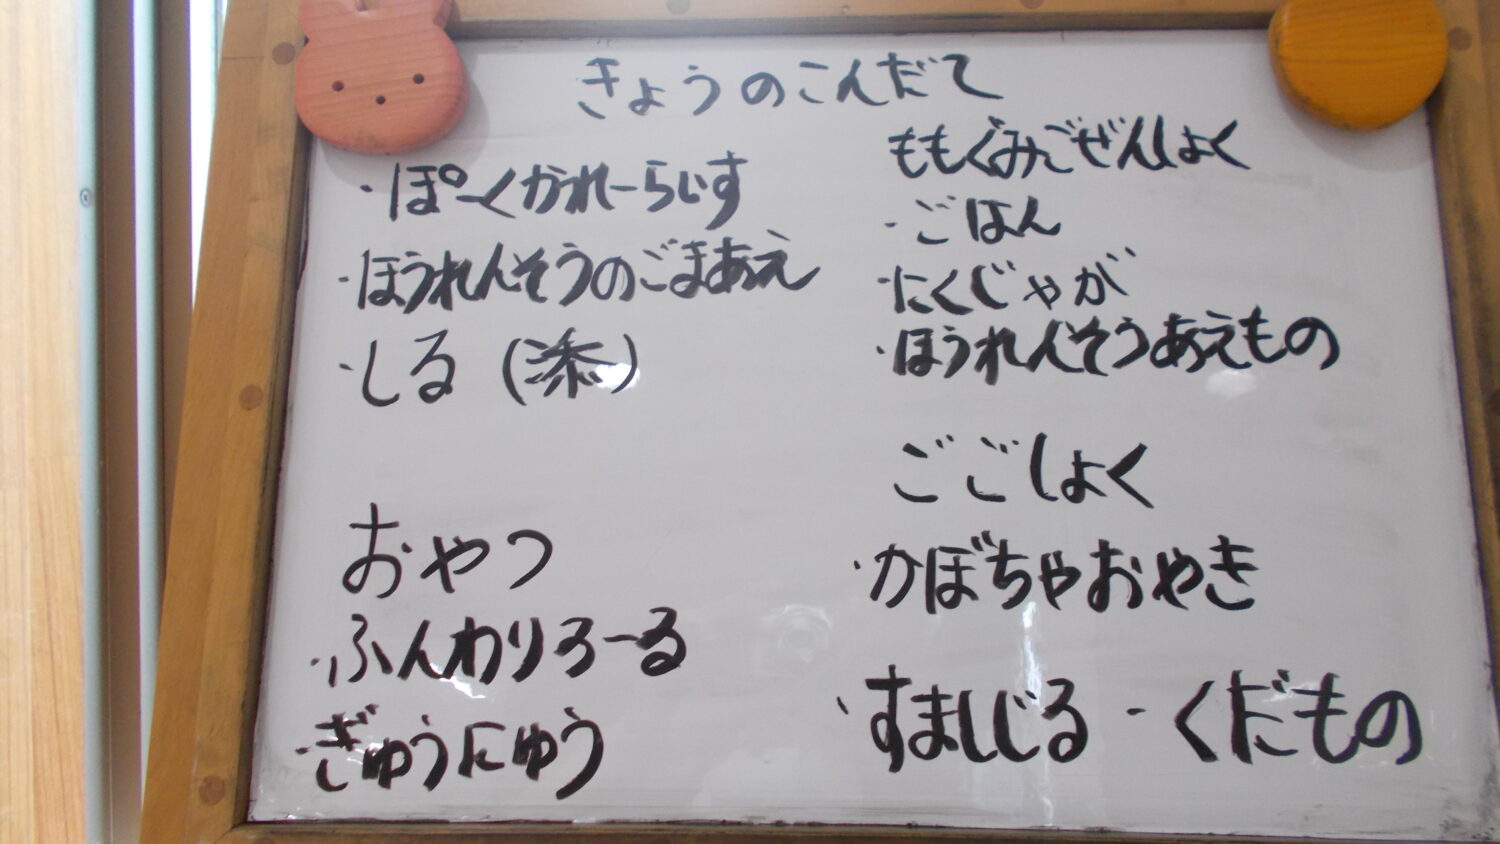 きょうのこんだて
・ぽーくかれーらいす
・ほうれんそうのごまあえ
・しる(添)
おやつ
・ふんわりろーる
・ぎゅうにゅう
ももぐみごぜんしょく
・ごはん
・にくじゃが
・ほうれんそうあえもの
ごごしょく
・かぼちゃおやき
・すましじる ・くだもの